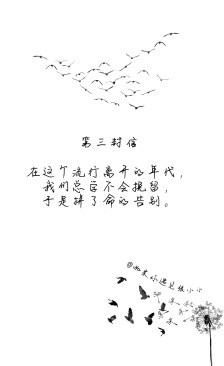 第三封信
在这个流行离开的年代，
我们总守不会挽留，
于是拼了命的告别。
@如果你遇见张小小